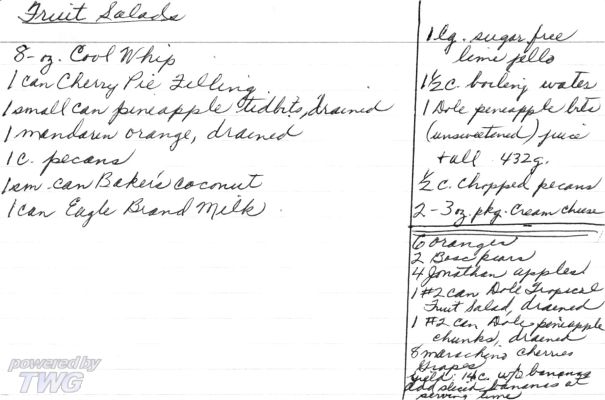 Fruit Salads
8-oz. Cool Whip
1 can Cherry Pie Filling
1 small can pineapple tidbits, drained
1 mandarin orange, drained
1 c. pecans
1 sm. can Baker's coconut
1 can Eagle Brand Milk
1 lg. sugar free
lime jello
1½ c. boiling water
1 Dole pineapple bits
(unsweetened) juice
+ all 432g.
½ c. chopped pecans
2-3 oz. pkg. cream cheese
6 oranges
2 Bosc pears
4 Jonathan apples
1 #2 can Dole Tropical
Fruit Salad, drained
1 #2 can Dole pineapple
chunks, drained
8 maraschino cherries
Grapes
yield: 14 c. w/o bananas
add sliced bananas at
serving time
powered by
TWG